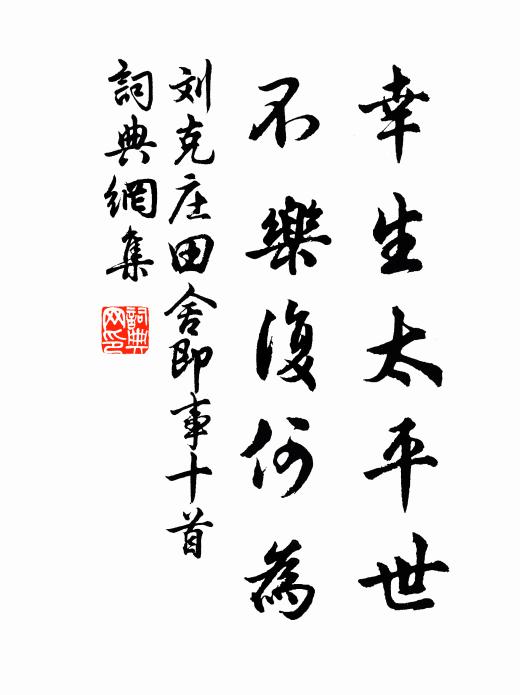 幸生太平世
不樂復何為
刘克庄田舍即事十首
詞典網集
詞典
网印